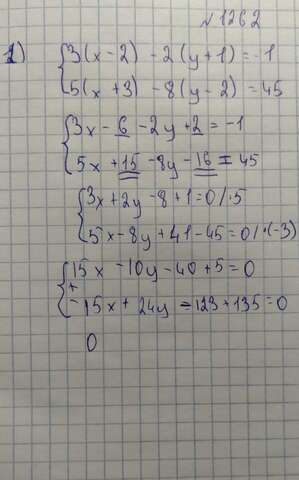 №1262
1) 3(x-2) - 2(y+1) = -1
5(x+3) - 8(y-2) = 45
3x - 6 - 2y + 2 = -1
5x + 15 - 8y - 16 = 45
3x + 2y - 8 + 1 = 0 /·5
5x - 8y + 41 - 45 = 0 /·(-3)
15x - 10y - 40 + 5 = 0
+
-15x + 24y - 123 + 135 = 0
0